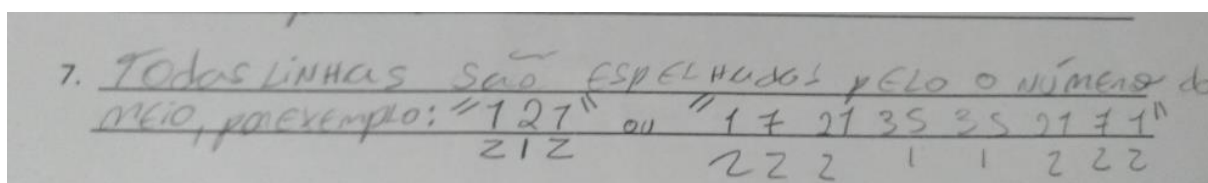 7. Todas LiNHas São ESPELHados pELO o número do
mEio, por exEmplo: "1 2 1" ou "1 7 21 35 35 21 7 1"
2 1 2 2 2 2 1 1 2 2 2